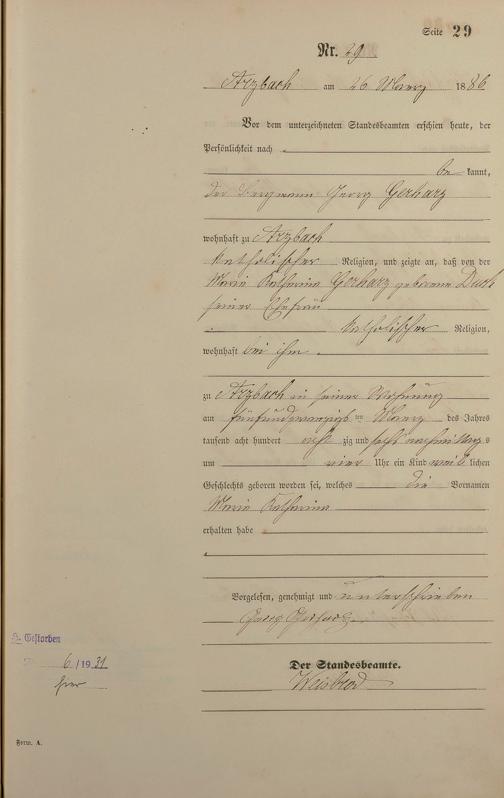 Seite 29
Nr. 29
Arzbach am 26 Maerz 1886
Vor dem unterzeichneten Standesbeamten erschien heute, der
Persönlichkeit nach
be kannt,
der Bergmann Georg Gerharz
wohnhaft zu Arzbach
katholischer Religion, und zeigte an, daß von der
Maria Katharina Gerharz geborene
seiner Ehefrau
katholischer Religion,
wohnhaft bei ihm
zu Arzbach in seiner Wohnung
am fünfundzwanzigsten Maerz des Jahres
tausend acht hundert acht zig und sechs nachmittags
um vier Uhr ein Kind weib lichen
Geschlechts geboren worden sei, welches die Vornamen
Maria Katharina
erhalten habe
Vorgelesen, genehmigt und unterschrieben
Georg Gerharz
Gestorben
6/1931
hier
Der Standesbeamte.
Weisbrod
Form. A.